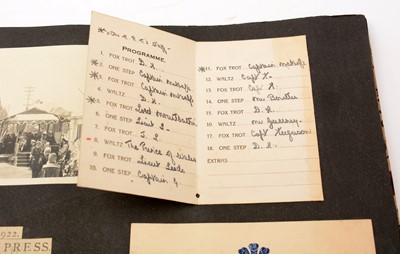 PROGRAMME.
1. FOX TROT D. R.
2. ONE STEP Captain Metcalfe
3. FOX TROT Captain Metcalfe
4. WALTZ D. R.
5. FOX TROT Lord Mountbatten
6. ONE STEP
7. FOX TROT
8. WALTZ The Prince of Wales
9. FOX TROT
10. ONE STEP Captain
11. FOX TROT Captain Metcalfe
12. WALTZ Capt
13. FOX TROT Capt
14. ONE STEP Mr
15. FOX TROT D. R.
16. WALTZ Mr
17. FOX TROT Capt Ferguson
18. ONE STEP D. R.
EXTRAS
1922.
PRESS.